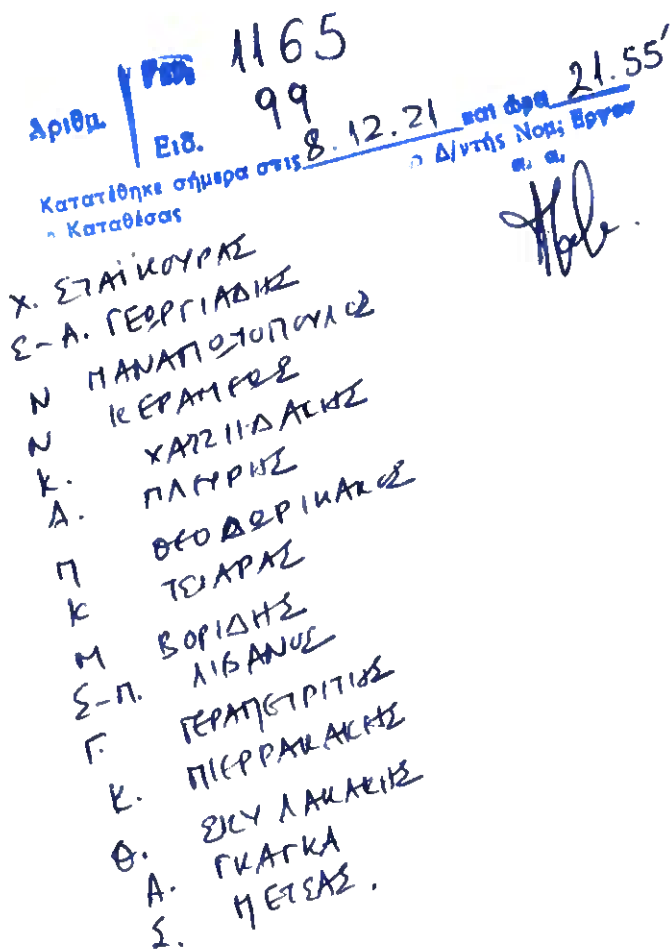 Αριθμ. Γεν. 1165
Ειδ. 99
Κατατέθηκε σήμερα στις 8.12.21 και ώρα 21.55'
ο Καταθέσας ο Δ/ντής Νομ; Εργου
α. α.
Χ. ΣΤΑΪΚΟΥΡΑΣ
Σ-Α. ΓΕΩΡΓΙΑΔΗΣ
Ν ΠΑΝΑΓΙΩΤΟΠΟΥΛΟΣ
Ν ΚΕΡΑΜΕΩΣ
Κ. ΧΑΤΖΗΔΑΚΗΣ
Α. ΠΛΕΥΡΗΣ
Π ΘΕΟΔΩΡΙΚΑΚΟΣ
Κ ΤΣΙΑΡΑΣ
Μ ΒΟΡΙΔΗΣ
Σ-Π. ΛΙΒΑΝΟΣ
Γ. ΓΕΡΑΠΕΤΡΙΤΗΣ
Κ. ΠΙΕΡΡΑΚΑΚΗΣ
Θ. ΣΚΥΛΑΚΑΚΗΣ
Α. ΓΚΑΓΚΑ
Σ. ΠΕΤΣΑΣ.